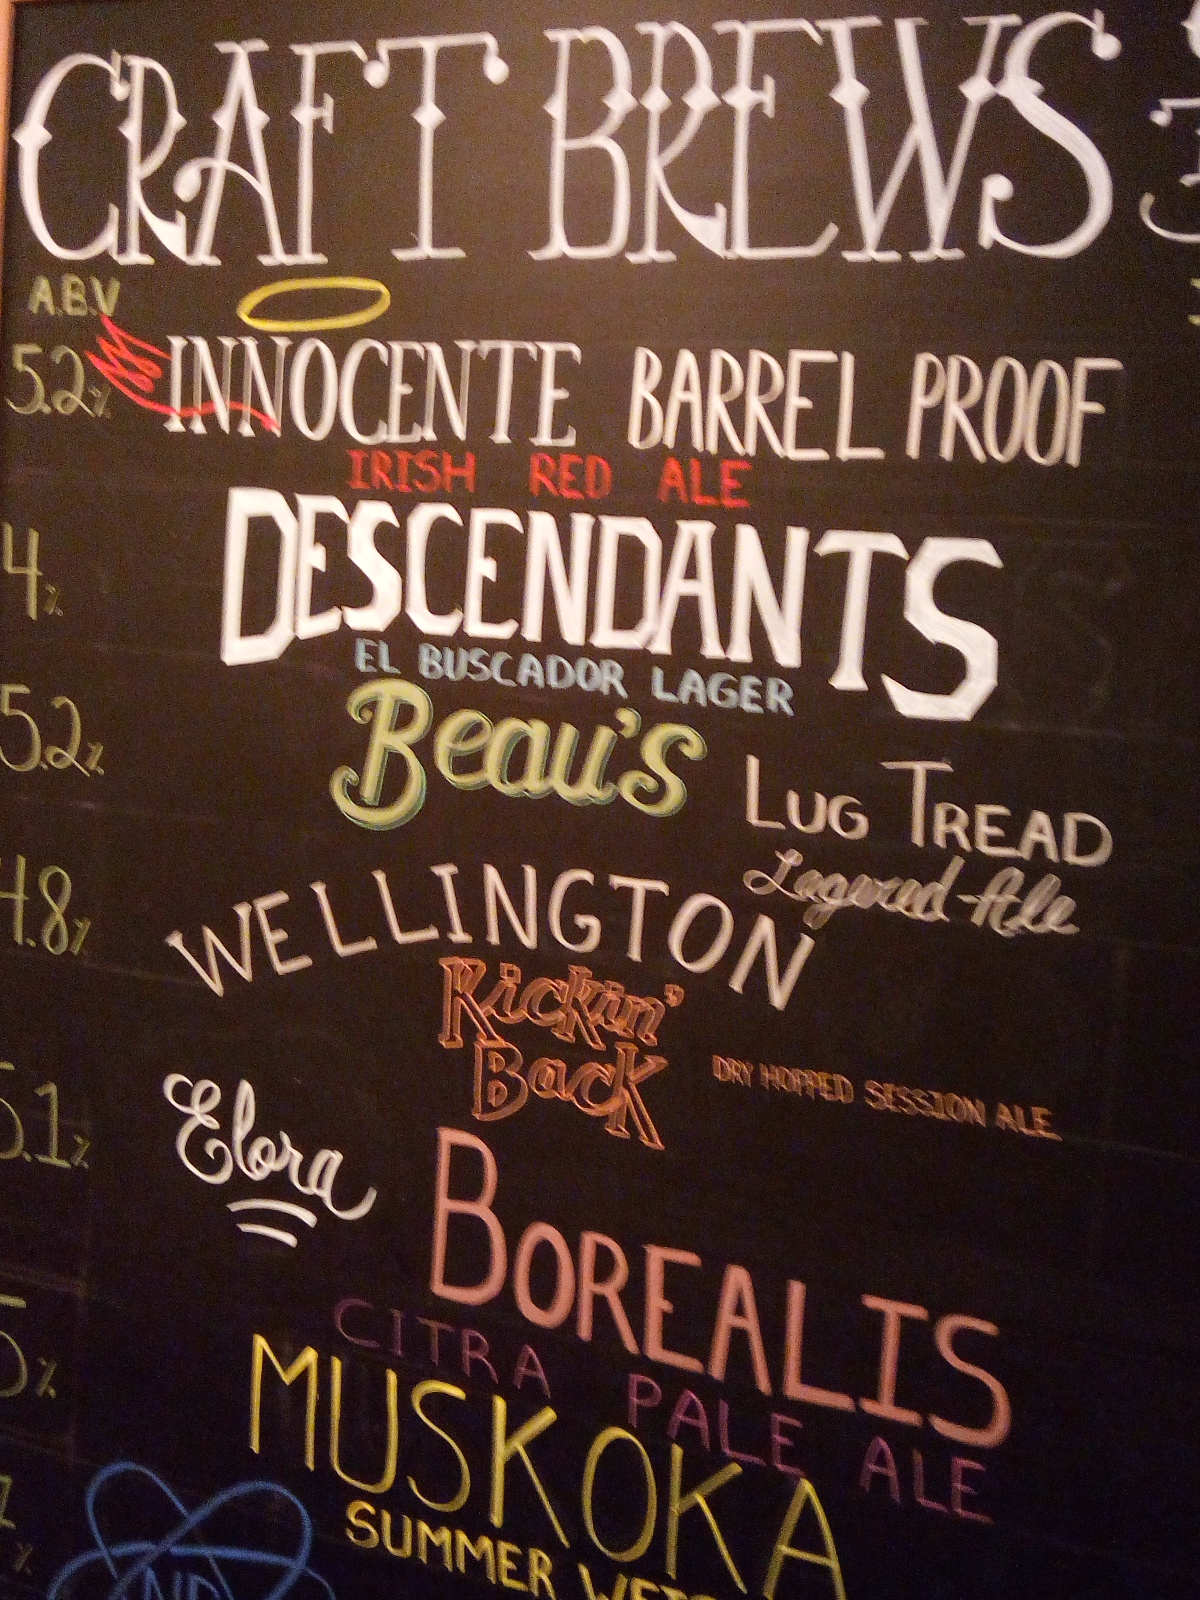 CRAFT BREWS
A.B.V
5.2% INNOCENTE BARREL PROOF
IRISH RED ALE
4% DESCENDANTS
EL BUSCADOR LAGER
5.2% Beau's LUG TREAD
Lagered Ale
4.8% WELLINGTON
Kickin'
Back DRY HOPPED SESSION ALE
5.1% Elora BOREALIS
CITRA PALE ALE
5% MUSKOKA
SUMMER
%